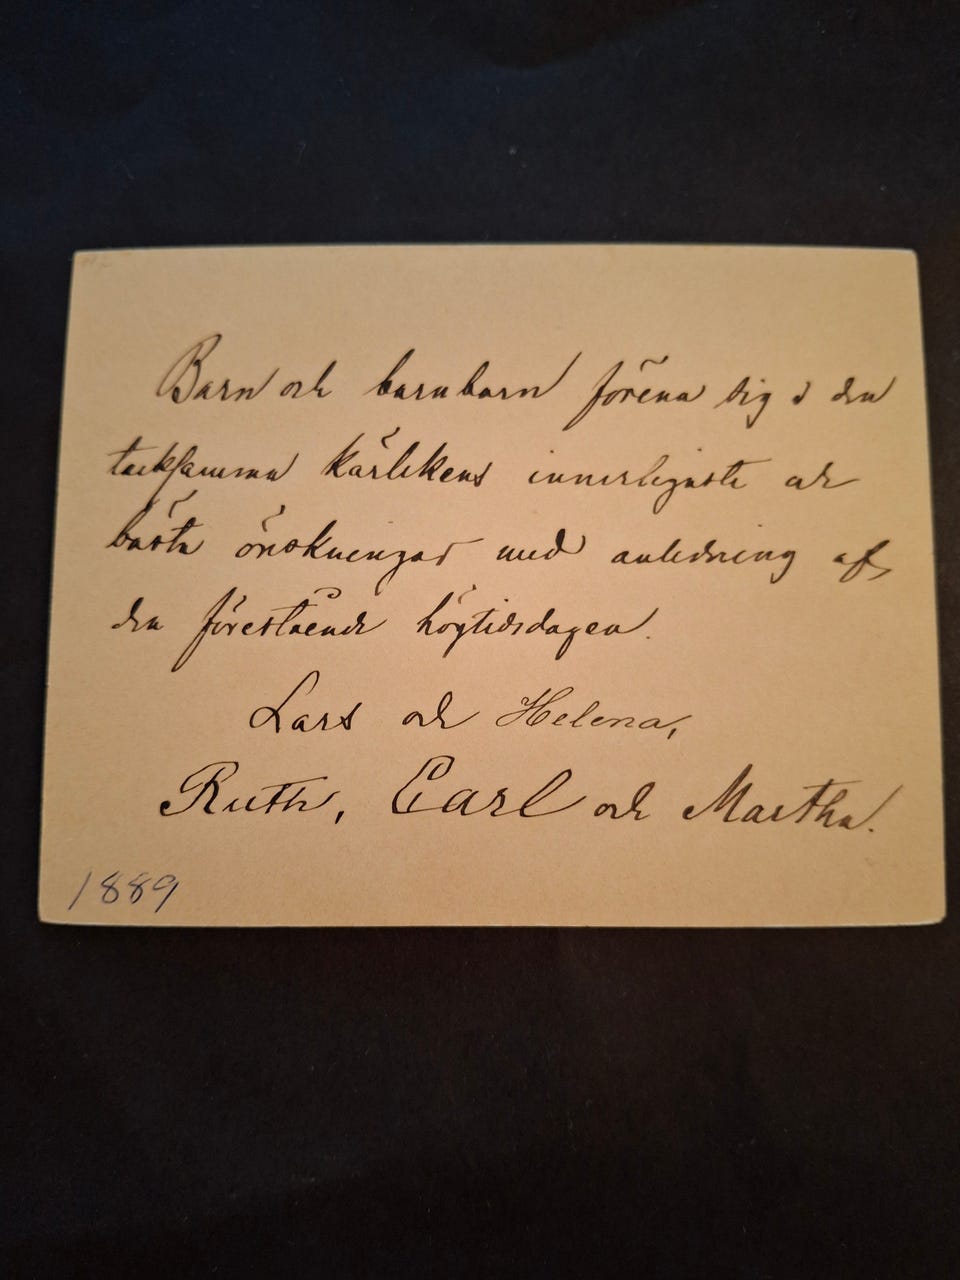 Barn och barnbarn förena sig i den
tacksamma kärlekens innerligaste och
bästa önskningar med anledning af
den förestående högtidsdagen.
Lars och Helena,
Ruth, Carl och Martha.
1889